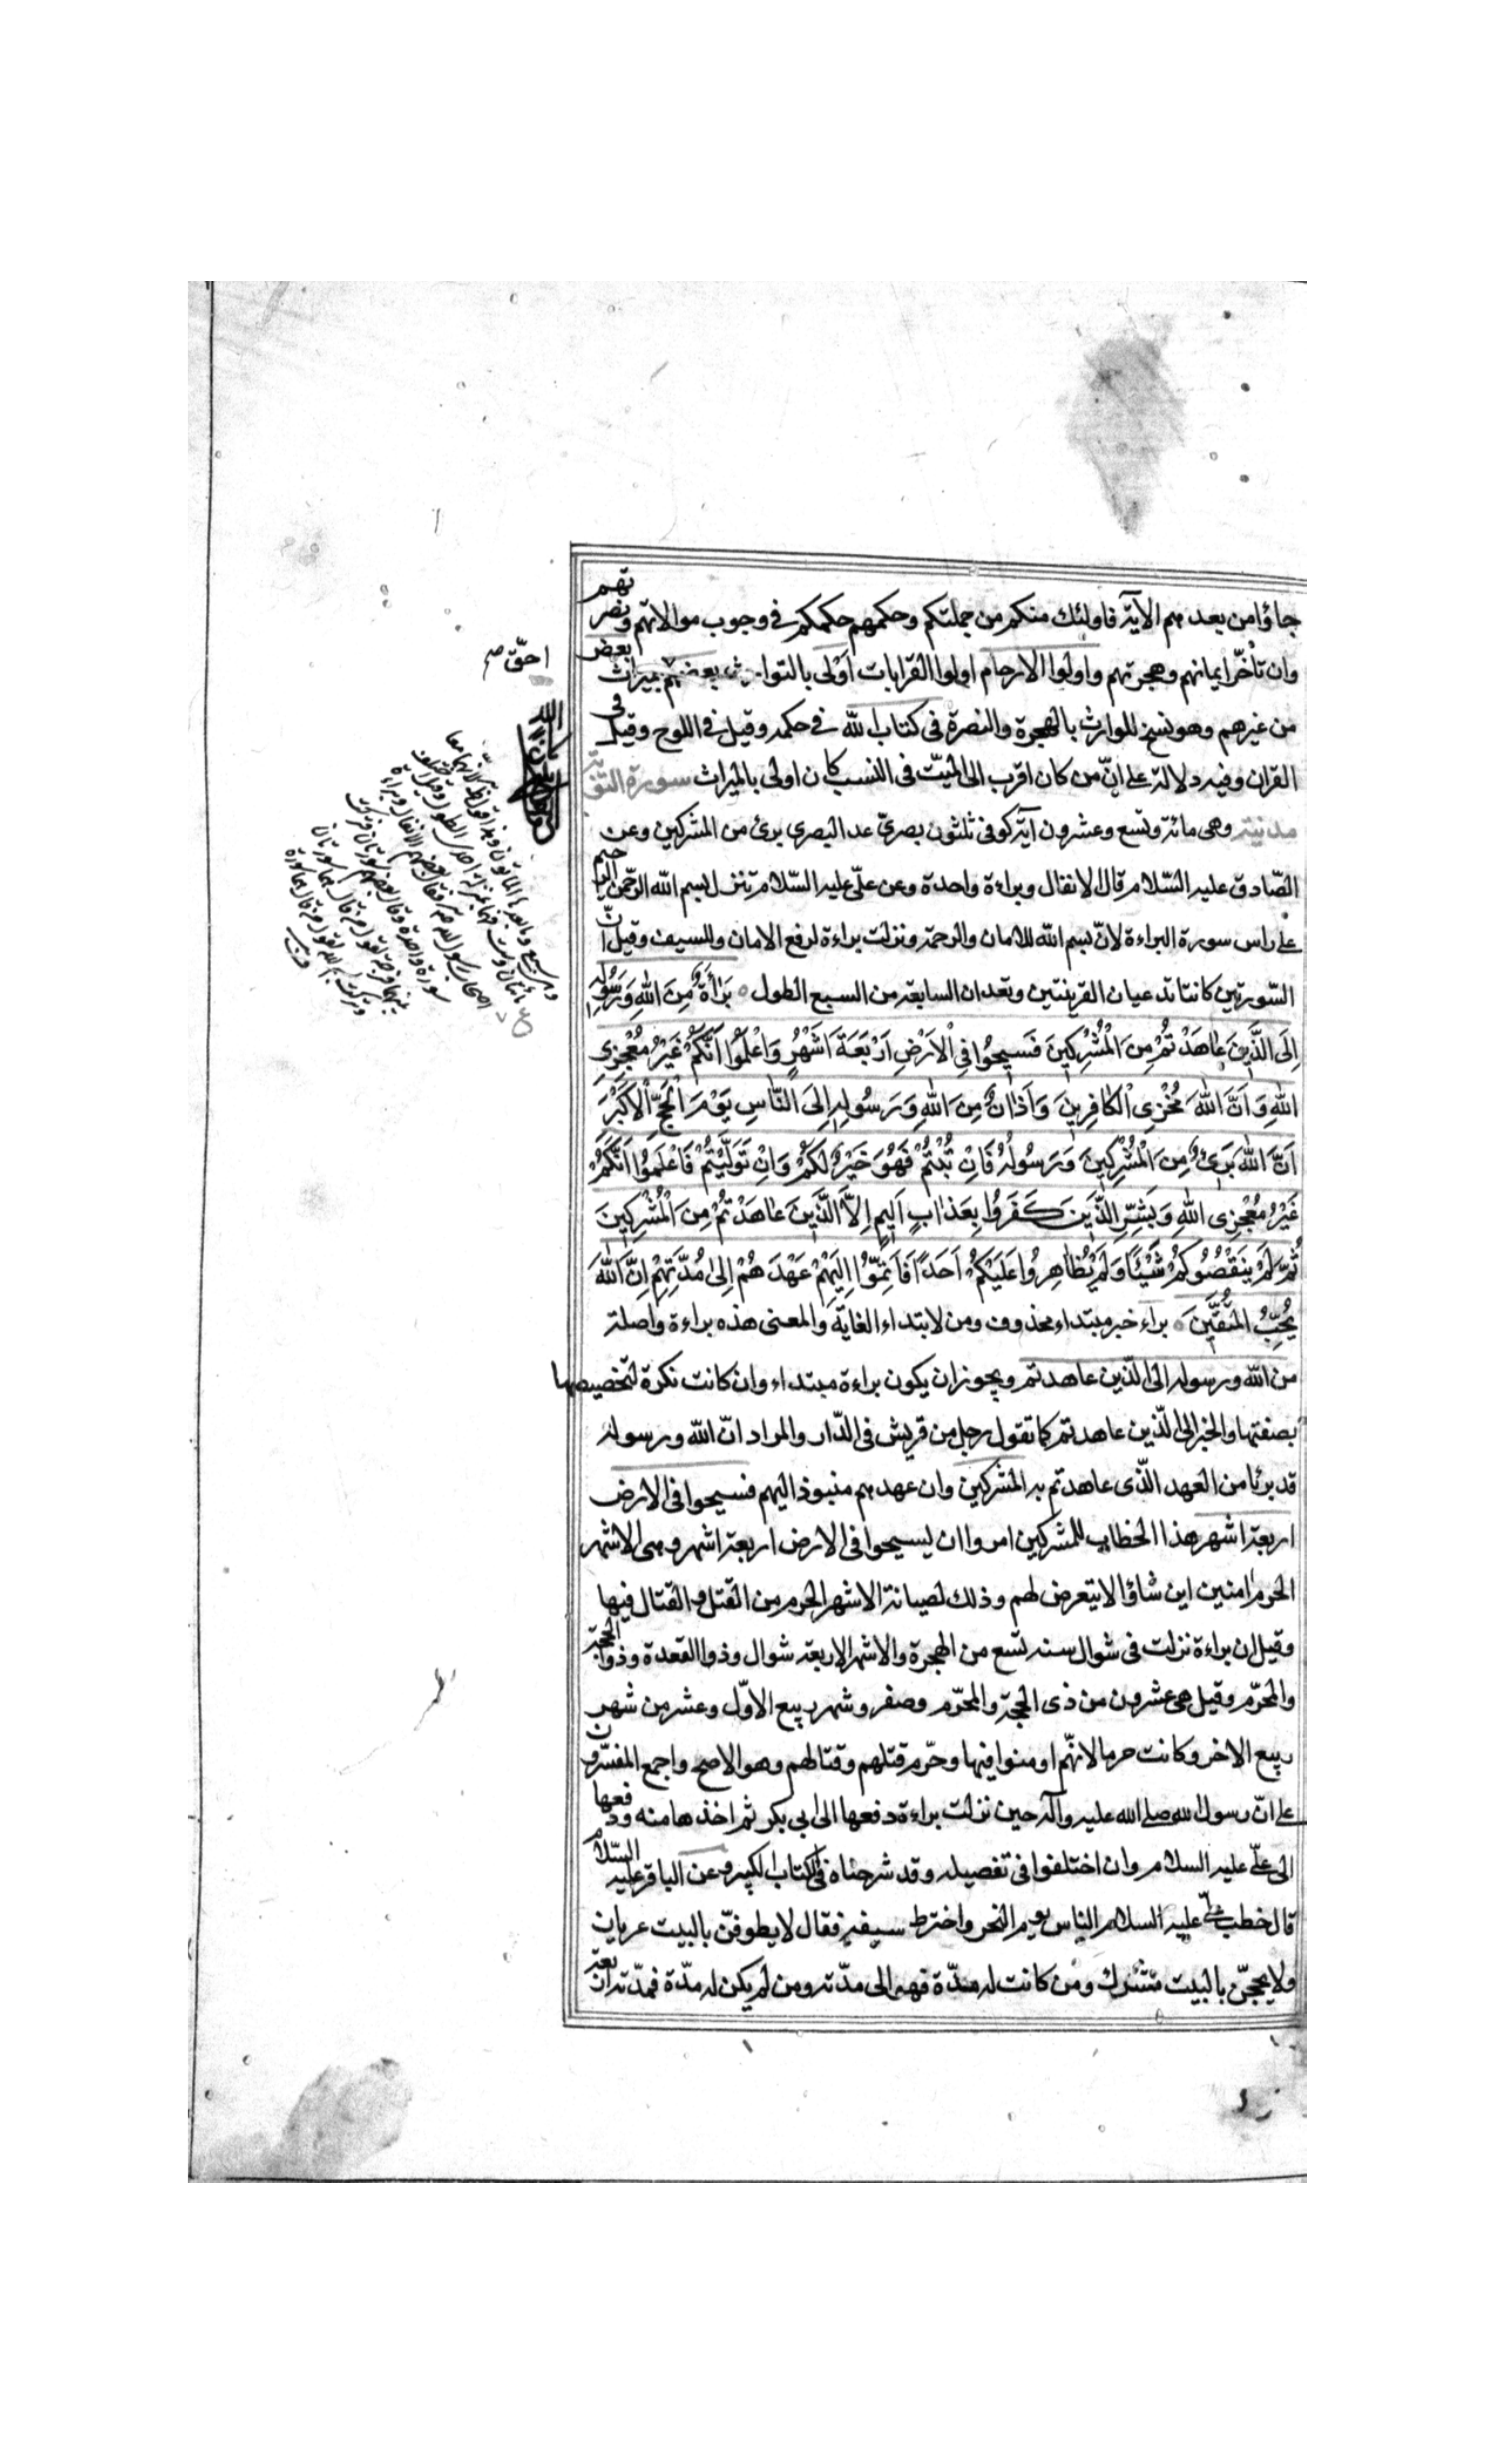 جاؤا من بعدهم الآية فاولئك منكم من جملتكم وحكمهم حكمكم في وجوب موالاتهم ونصرتهم
وان تأخّر ايمانهم وهجرتهم واولوا الارحام اولوا القرابات اَوْلى بالتوارث بعضهم بميراث بعض
من غيرهم وهو نسخ للتوارث بالهجرة والنصرة في كتاب الله في حكمه وقيل في اللوح وقيل في
القران وفيه دلالة على انّ من كان اقرب الى الميّت في النسب كان اولى بالميراث سورة التوبة
مدنية وهى مائة وتسع وعشرون آية كوفى ثلثون بصريّ عد البصري برئ من المشركين وعن
الصّادق عليه السّلام قال الانفال وبراءة واحدة وعن علّي عليه السّلام لم تنزل بسم الله الرّحمن الرحيم
على راس سورة البراءة لانّ بسم الله للامان والرحمة ونزلت براءة لرفع الامان وللسيف وقيل انّ
السّورتين كانتا تدعيان القرينتين وتعدان السابعة من السبع الطول ٥ بَرَاءَةٌ مِنَ اللهِ وَرَسُولِهِ
اِلَى الَّذِينَ عَاهَدْتُمْ مِنَ الْمُشْرِكِينَ فَسِيحُوا فِى الْاَرْضِ اَرْبَعَةَ اَشْهُرٍ وَاعْلَمُوا اَنَّكُمْ غَيْرُ مُعْجِزِى
اللهِ وَ اَنَّ اللهَ مُخْزِى الْكَافِرِينَ وَاَذَانٌ مِنَ اللهِ وَرَسُولِهِ اِلَى النَّاسِ يَوْمَ الْحَجِّ الْاَكْبَرِ
اَنَّ اللهَ بَرِئٌ مِنَ الْمُشْرِكِينَ وَرَسُولُهُ فَاِنْ تُبْتُمْ فَهُوَ خَيْرٌ لَكُمْ وَاِنْ تَوَلَّيْتُمْ فَاعْلَمُوا اَنَّكُمْ
غَيْرُ مُعْجِزِى اللهِ وَبَشِّرِ الَّذِينَ كَفَرُوا بِعَذَابٍ اَلِيمٍ اِلَّا الَّذِينَ عَاهَدْتُمْ مِنَ الْمُشْرِكِينَ
ثُمَّ لَمْ يَنْقُصُوكُمْ شَيْئًا وَلَمْ يُظَاهِرُوا عَلَيْكُمْ اَحَدًا فَاَتِمُّوا اِلَيْهِمْ عَهْدَهُمْ اِلىٰ مُدَّتِهِمْ اِنَّ اللهَ
يُحِبُّ الْمُتَّقِينَ ٥ براءة خبر مبتداء محذوف ومن لابتداء الغاية والمعنى هذه براءة واصلة
من الله ورسوله الى الّذين عاهدتم ويجوز ان يكون براءة مبتداء وان كانت نكرة لتخصيصها
بصفتها والخبر الى الّذين عاهدتم كما تقول رجل من قريش في الدّار والمراد انّ الله ورسوله
قد برئا من العهد الّذى عاهدتم به المشركين وان عهدهم منبوذ اليهم فسيحوا في الارض
اربعة اشهر هذا الخطاب للمشركين امروا ان يسيحوا في الارض اربعة اشهر وهي الاشهر
الحرم امنين اين شاؤا لا يتعرض لهم وذلك لصيانة الاشهر الحرم من القتل والقتال فيها
وقيل ان براءة نزلت في شوال سنه تسع من الهجرة والاشهر الاربعة شوال وذوا القعدة وذوا الحجة
والمحرّم وقيل هي عشرون من ذى الحجة والمحرّم وصفر وشهر ربيع الاوّل وعشر من شهر
ربيع الاخر وكانت حرما لانهّم اومنوا فيها وحّرم قتلهم وقتالهم وهو الاصح واجمع المفسّرون
على انّ رسول الله صلى الله عليه وآله حين نزلت براءة دفعها الى ابي بكر ثم اخذها منه ودفعها
الى علّي عليه السلام وان اختلفوا في تفصيله وقد شرحناه في الكتاب الكبير وعن الباقر عليه السّلام
قال خطب علي عليه السلام الناس يوم النحر واخترط سيفه فقال لا يطوفنّ بالبيت عريان
ولا يحجنّ بالبيت مشرك ومن كانت له مدّة فهو الى مدّته ومن لم يكن له مدّة فمدّته اربعة
احقّ صح